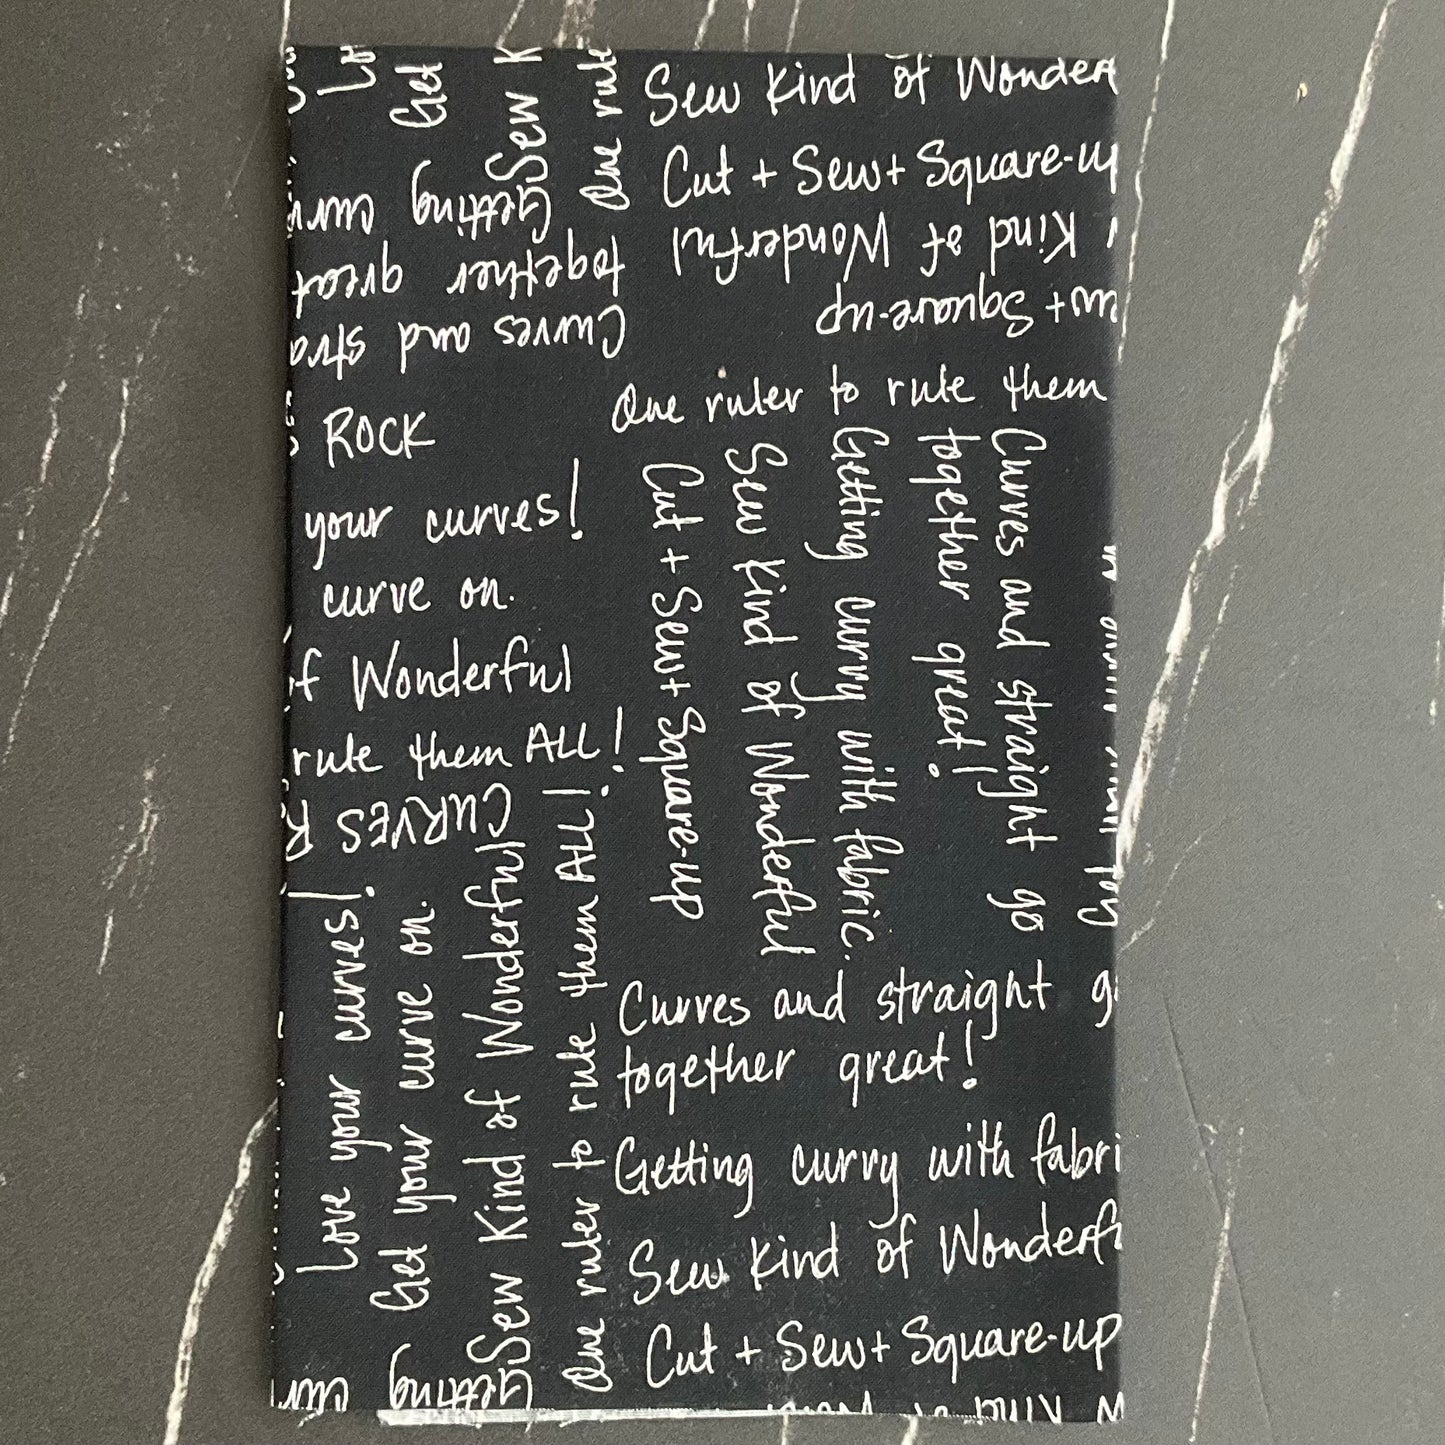 Get
Sew K
One rule
Sew Kind of Wonderf
Cut + Sew + Square-up
Kind of Wonderful
Square-up
Getting
curv
together great
Curves and stra
ROCK
your curves!
curve on.
of Wonderful
rule them ALL!
CURVES R
One ruler to rule them
Cut + Sew + Square-up
Sew Kind of Wonderful
Getting curvy with fabric.
together great!
Curves and straight go
Love your curves!
Get your curve on.
Sew Kind of Wonderful
One ruler to rule them ALL!
Curves and straight g
together great!
Getting curvy with fabri
Sew Kind of Wonderf
Cut + Sew + Square-up
Getting